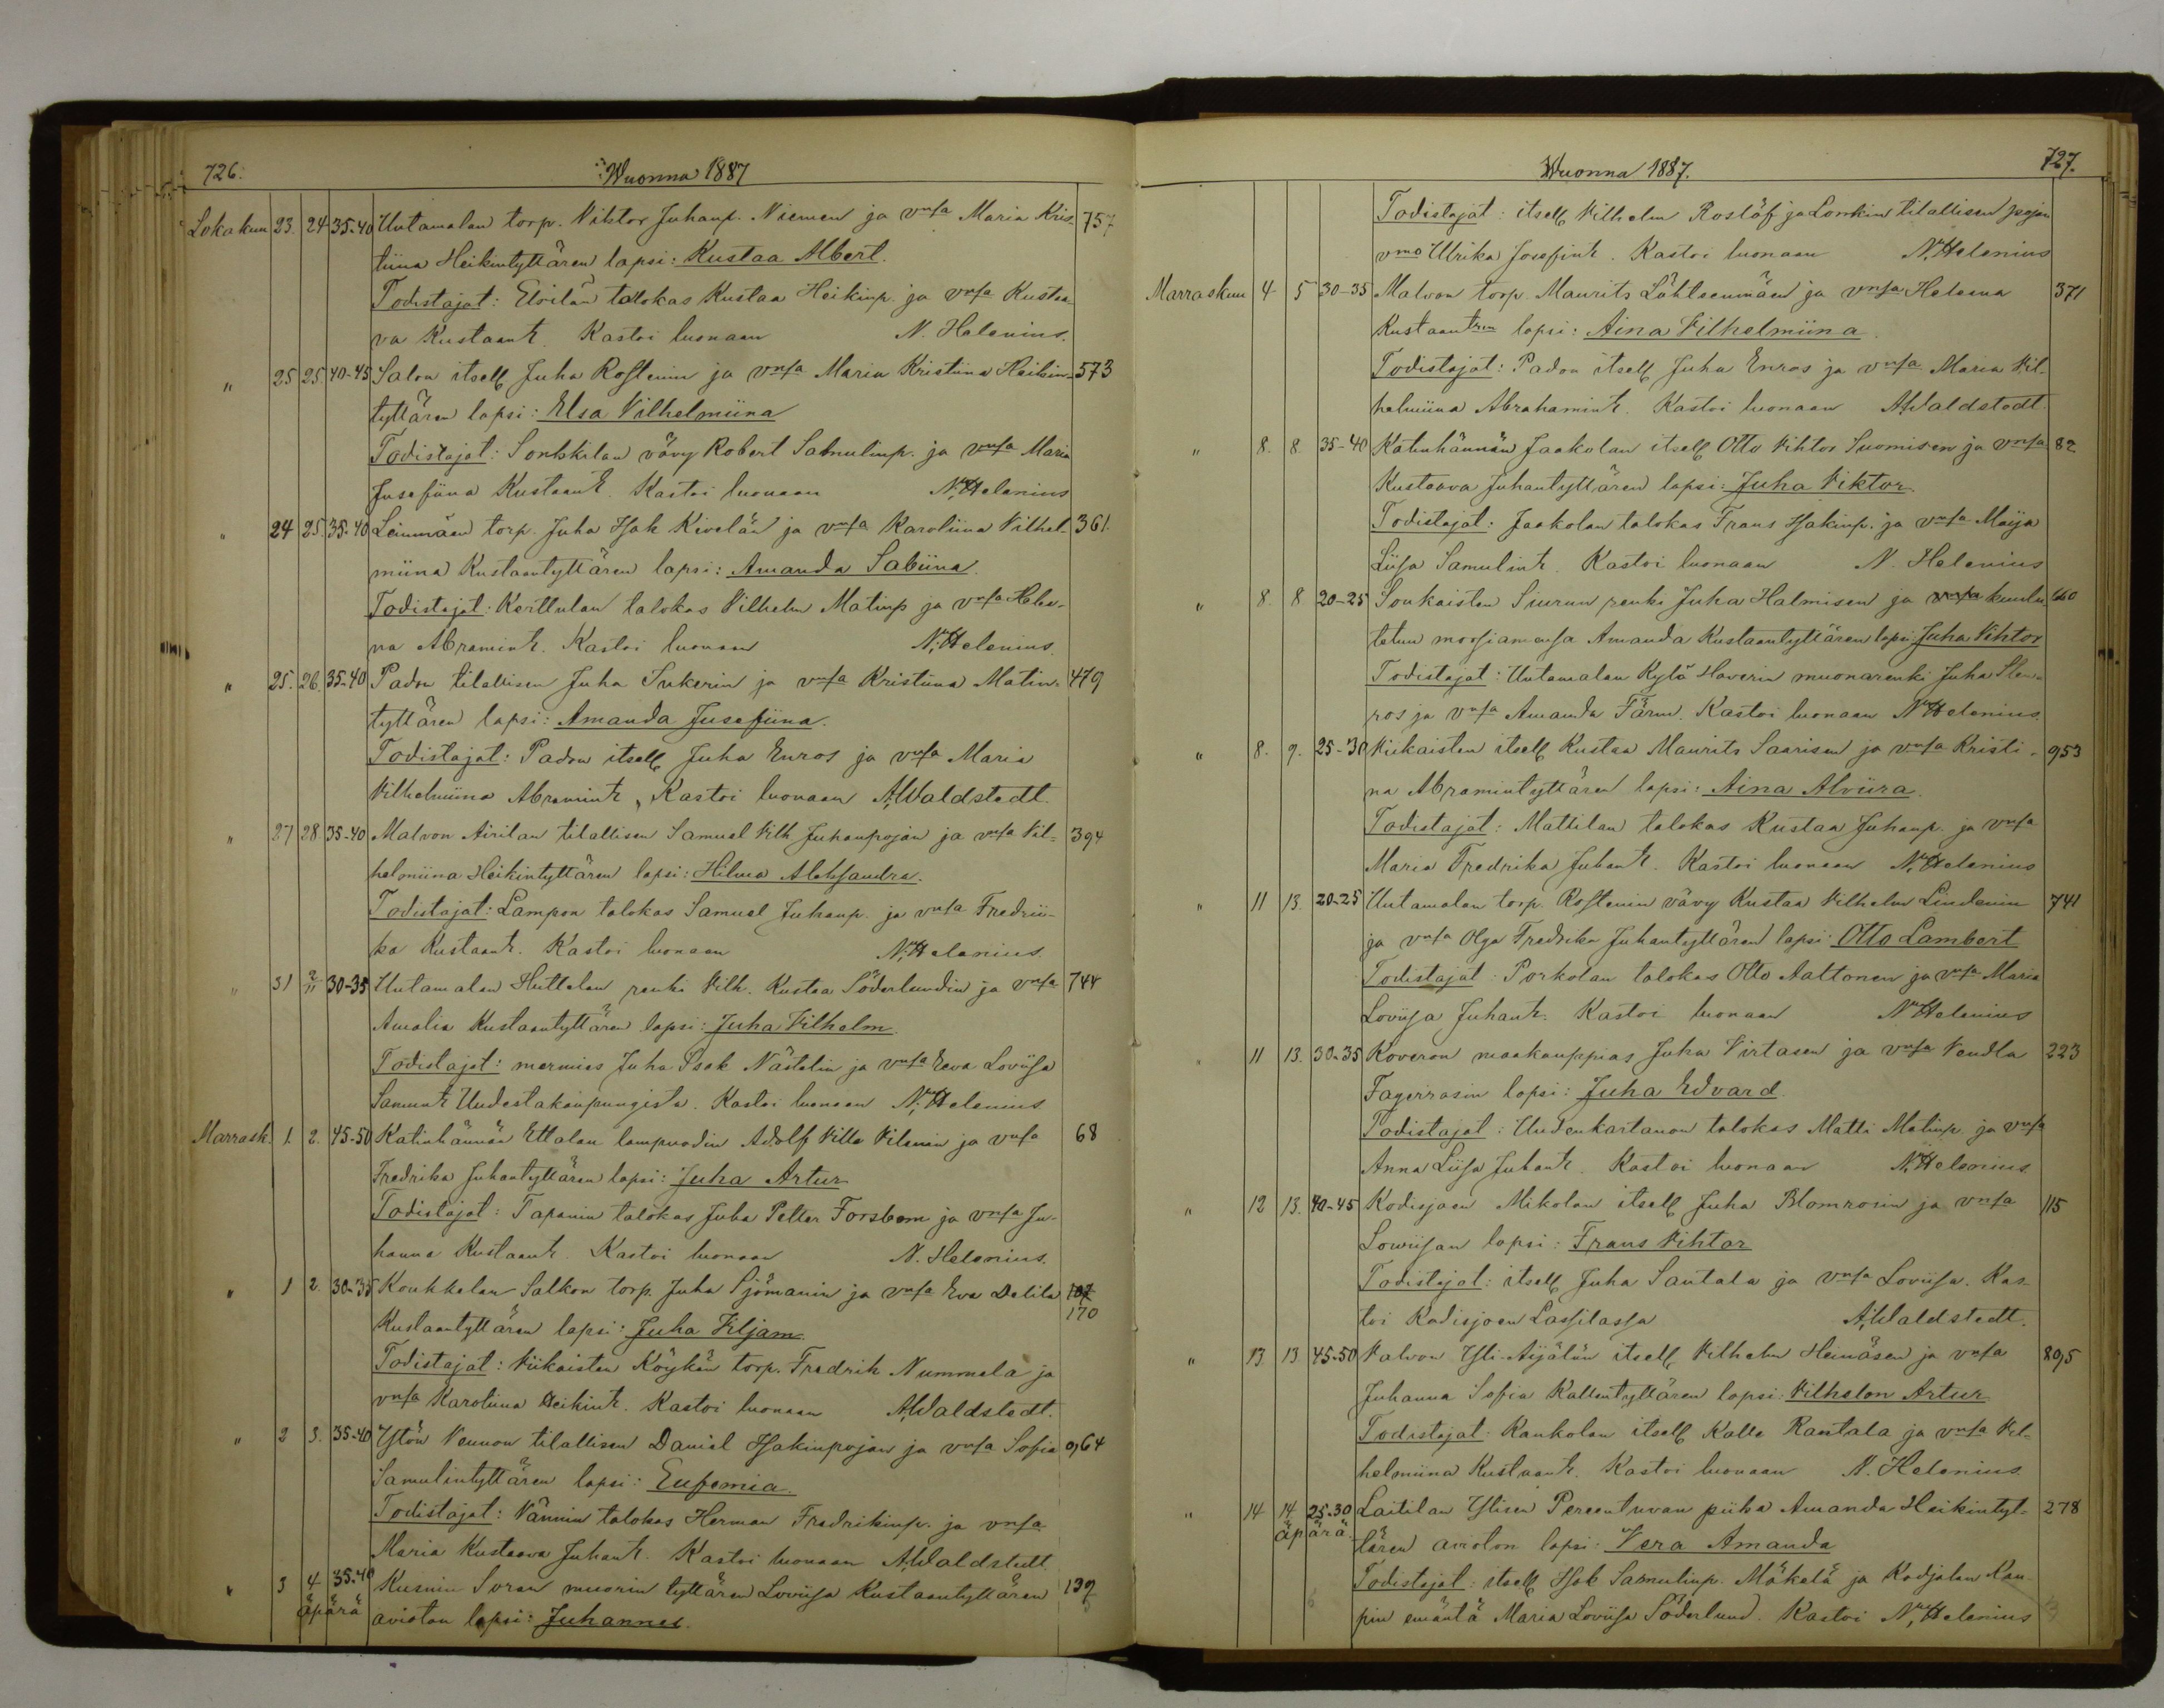 726.
Wuonna 1887
Lokakuu 23. 24 35-40 Untamalan torp. Viktor Juhanp. Niemen ja vmsa Maria Kris- 757
tiina Heikintyttären lapsi: Kustaa Albert.
Todistajat: Eivilän talokas Kustaa Heikinp. ja vmsa Kustaa-
va Kustaant. Kastoi luonaan N. Helenius.
" 25 25. 40-45 Salon itsell Juha Rostenin ja vmsa Maria Kristiina Heikin- 573
tyttären lapsi: Elsa Vilhelmiina
Todistajat: Sontskilan vävy Robert Samulinp. ja vmsa Maria
Jusefiina Kustaant. Kastoi luonaan N. Helenius
" 24 25. 35-40 Leinmäen torp. Juha Isak Kivelän ja vmsa Karoliina Vilhel- 361.
miina Kustaantyttären lapsi: Amanda Sabiina.
Todistajat: Kerttulan talokas Vilhelm Matinp ja vmsa Hele-
na Abramint. Kastoi luonaan N. Helenius.
" 25. 26. 35-40 Padon tilallisen Juha Sukerin ja vmsa Kristiina Matin- 479
tyttären lapsi: Amanda Jusefiina.
Todistajat: Padon itsell Juha Enros ja vmsa Maria
Vilhelmiina Abramint. Kastoi luonaan A. Waldstedt.
" 27 28 35-40 Malvon Airilan tilallisen Samuel Vilh Juhanpojan ja vmsa Vil- 394
helmiina Heikintyttären lapsi: Hilma Aleksandra.
Todistajat: Lampon talokas Samuel Juhanp. ja vmsa Fredrii-
ka Kustaant. Kastoi luonaan N. Helenius.
" 31 2/11 30-35 Untamalan Huttalan renki Vilh. Kustaa Söderlundin ja vmsa 744
Amalia Kustaantyttären lapsi: Juha Vilhelm.
Todistajat: mermies Juha Isak Nästelin ja vmsa Eeva Loviisa
Samunt Uudestakaupungista. Kastoi luonaan N. Helenius
Marrask. 1. 2. 45-50 Katinhännän Ettalan lampuodin Adolf Ville Vilenin ja vmsa 68
Fredrika Juhantyttären lapsi: Juha Artur
Todistajat: Tapanin talokas Juha Petter Forsbom ja vmsa Ju-
hanna Kustaant. Kastoi luonaan N. Helenius.
" 1 2. 30-35 Koukkelan Salkon torp. Juha Sjömanin ja vmsa Eva Delila 107
170
Kustaantyttären lapsi: Juha Viljam.
Todistajat: Viikaisten Köykän torp. Fredrik Nummela ja
vmsa Karoliina Heikint. Kastoi luonaan A. Waldstedt.
" 2 3. 35-40 Ytön Vennon tilallisen Daniel Isakinpojan ja vmsa Sofia 964
Samulintyttären lapsi: Eufemia.
Todistajat: Vännin talokas Herman Fredrikinp. ja vmsa
Maria Kustaava Juhant. Kastoi luonaan A. Waldstedt
" 3 4 35-40 Kusnin Soran muorin tyttären Loviisa Kustaantyttären 139
äpärä avioton lapsi: Juhannes.
727.
Wuonna 1887.
Todistajat: itsell Vilhelm Roslöf ja Lonkin tilallisen pojan
vmo Ulrika Josefint. Kastoi luonaan N. Helenius
Marraskuu 4 5 30-35 Malvon torp. Maurits Lähteenmäen ja vmsa Helena 371
Kustaantren lapsi: Aina Vilhelmiina.
Todistajat: Padon itsell Juha Enros ja vmsa Maria Vil-
helmiina Abrahamint. Kastoi luonaan A. Waldstedt.
" 8. 8. 35-40 Katinhännän Jaakolan itsell Otto Vihtor Suomisen ja vmsa 82
Kustaava Juhantyttären lapsi: Juha Viktor.
Todistajat: Jaakolan talokas Frans Isakinp. ja vmsa Maija
Liisa Samulint. Kastoi luonaan N. Helenius
" 8. 8 20-25 Soukaisten Siurun renki Juha Halmisen ja vmsa kuulu- 660
tetun morsiamensa Amanda Kustaantyttären lapsi Juha Vihtor
Todistajat: Untamalan Kylä Haverin muonarenki Juha Sten-
ros ja vmsa Amanda Färm. Kastoi luonaan N. Helenius.
" 8. 9. 25-30 Viikaisten itsell Kustaa Maurits Saarisen ja vmsa Kristi- 953
na Abramintyttären lapsi: Aina Alviira.
Todistajat: Mattilan talokas Kustaa Juhanp. ja vmsa
Maria Fredrika Juhant. Kastoi luonaan N. Helenius
" 11 13. 20-25 Untamalan torp. Rostenin vävy Kustaa Vilhelm Lindenin 741
ja vmsa Olga Fredrika Juhantyttären lapsi: Otto Lambert
Todistajat: Porkolan talokas Otto Aaltonen ja vmsa Maria
Loviisa Juhant. Kastoi luonaan N. Helenius
" 11 13. 30-35 Koveron maakauppias Juha Virtasen ja vmsa Vendla 223
Fagerrosin lapsi: Juha Edvard.
Todistajat: Uudenkartanon talokas Matti Matinp. ja vmsa
Anna Liisa Juhant. Kastoi luonaan N. Helenius
" 12 13. 40-45 Kodisjoen Mikolan itsell Juha Blomrosin ja vmsa 115
Lowiisan lapsi: Frans Vihtor
Todistajat: itsell Juha Santala ja vmsa Loviisa. Kas-
toi Kodisjoen Lassilassa A. Waldstedt.
" 13 13 45-50 Valvon Yli-Äijälän itsell Vilhelm Heinäsen ja vmsa 895
Juhanna Sofia Kallentyttären lapsi: Vilhelm Artur
Todistajat: Rankolan itsell Kalle Rantala ja vmsa Vil-
helmiina Kustaant. Kastoi luonaan N. Helenius.
" 14 14 25-30 Laitilan Ylisen Pereentuvan piika Amanda Heikintyt- 278
äpärä tären avioton lapsi: Vera Amanda
Todistajat: itsell Isak Samulinp. Mäkelä ja Kodjalan Kau-
pin emäntä Maria Loviisa Söderlund. Kastoi N. Helenius